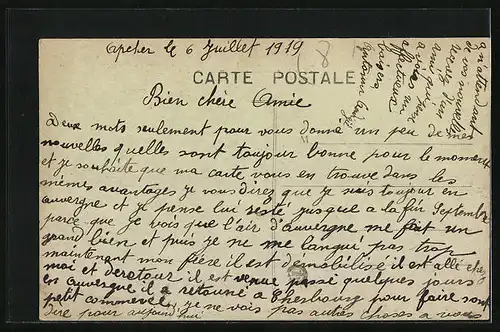 apcher le 6 Juillet 1919
CARTE POSTALE
Bien chère Amie
Deux mots seulement pour vous donné un peu de mes
nouvelles quelles sont toujour bonne pour le moment
et je souhaite que ma carte vous en trouve dans les
mêmes avantages je vous direz que je suis toujour en
auvergne et je pense lui resté jusque a la fin Septembre
parce que je vois que l'air d'auvergne me fait un
grand bien et puis je ne me langui pas trop
maintenant mon frère il est démobilisé il est allé chez
moi et de retour il est venue passé quelques jours
en auvergne il a retourné a Cherbourg pour faire son
petit commerce je ne vois pas autres choses a vous
dire pour aujourd'hui
a n'attendant
de vos nouvelles
recevez d'un
ami qui pense
a vous un
affectueux
baiser